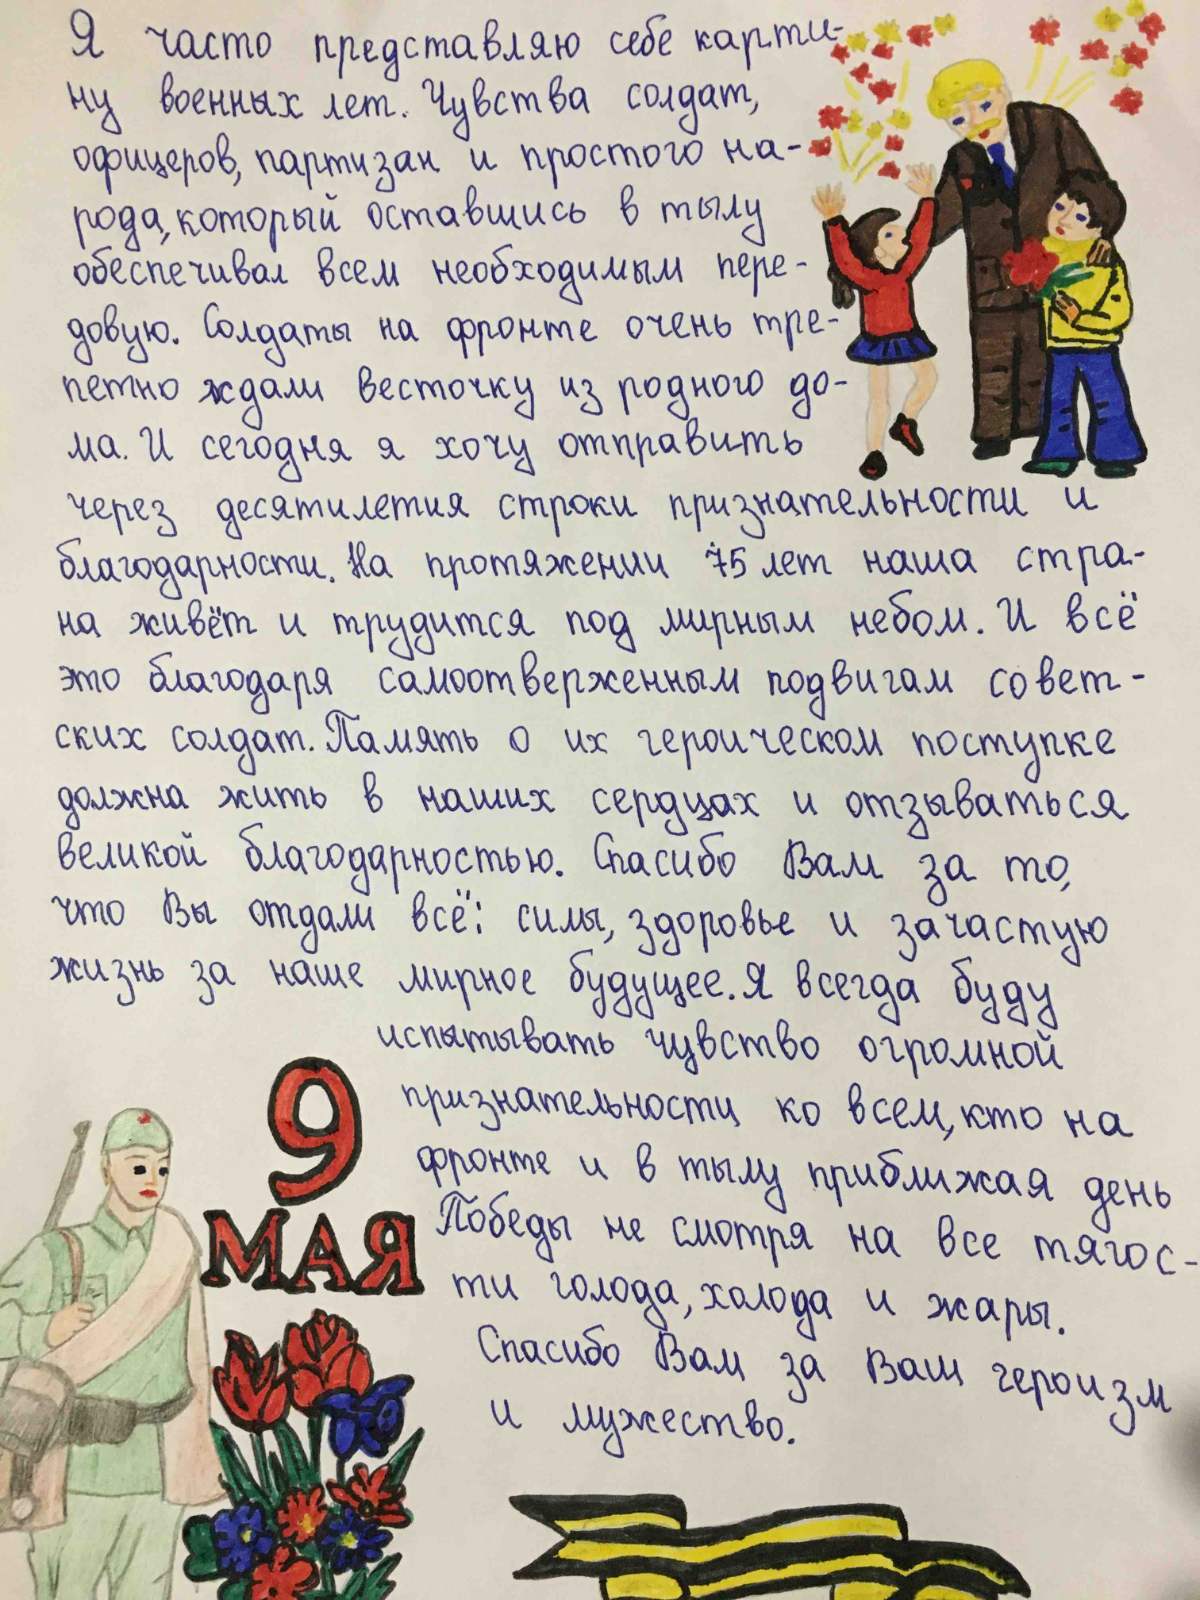 Я часто представляю себе карти-
ну военных лет. Чувства солдат,
офицеров, партизан и простого на-
рода, который оставшись в тылу
обеспечивал всем необходимым пере-
довую. Солдаты на фронте очень тре-
петно ждали весточку из родного до-
ма. И сегодня я хочу отправить
через десятилетия строки признательности и
благодарности. На протяжении 75 лет наша стра-
на живёт и трудится под мирным небом. И всё
это благодаря самоотверженным подвигам совет-
ских солдат. Память о их героическом поступке
должна жить в наших сердцах и отзываться
великой благодарностью. Спасибо Вам за то,
что Вы отдали всё: силы, здоровье и зачастую
жизнь за наше мирное будущее. Я всегда буду
испытывать чувство огромной
признательности ко всем, кто на
фронте и в тылу приближая день
Победы не смотря на все тягос-
ти голода, холода и жары.
Спасибо Вам за Ваш героизм
и мужество.
9
МАЯ